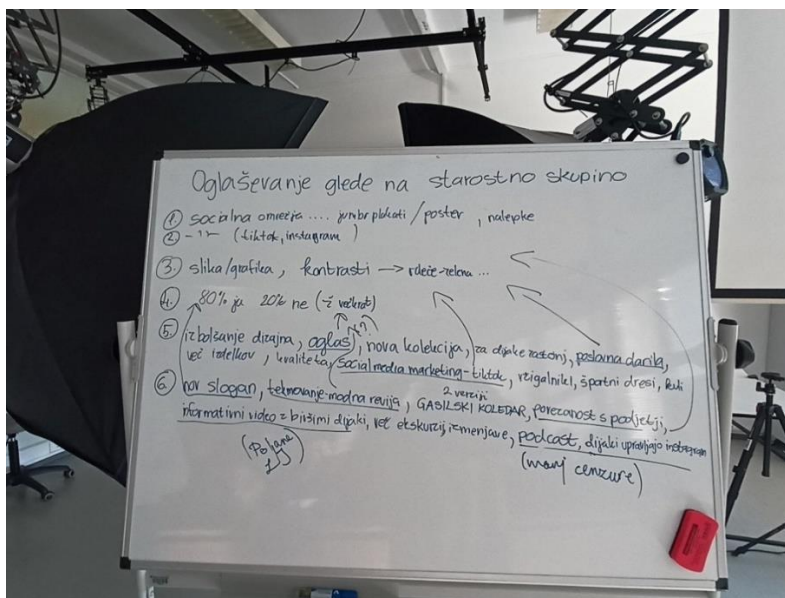 Oglaševanje glede na starostno skupino
1. socialna omrežja .... jumbo plakati / poster, nalepke
2. -"- (tiktok, instagram)
3. slika/grafika, kontrasti → rdeče-zelena ...
4. 80% ja 20% ne (že večkrat)
5. izbolšanje dizajna, oglas, nova kolekcija, za dijake zastonj, poslovna darila,
več izdelkov, kvaliteta, social media marketing - tiktok, vžigalniki, športni dresi,
2 verziji
6. nov slogan, tekmovanje - modna revija, GASILSKI KOLEDAR, povezanost s podjetji,
informativni video z bivšimi dijaki, več ekskurzij, izmenjave, podcast, dijaki upravljajo instagram
(Poljane)
(manj cenzure)